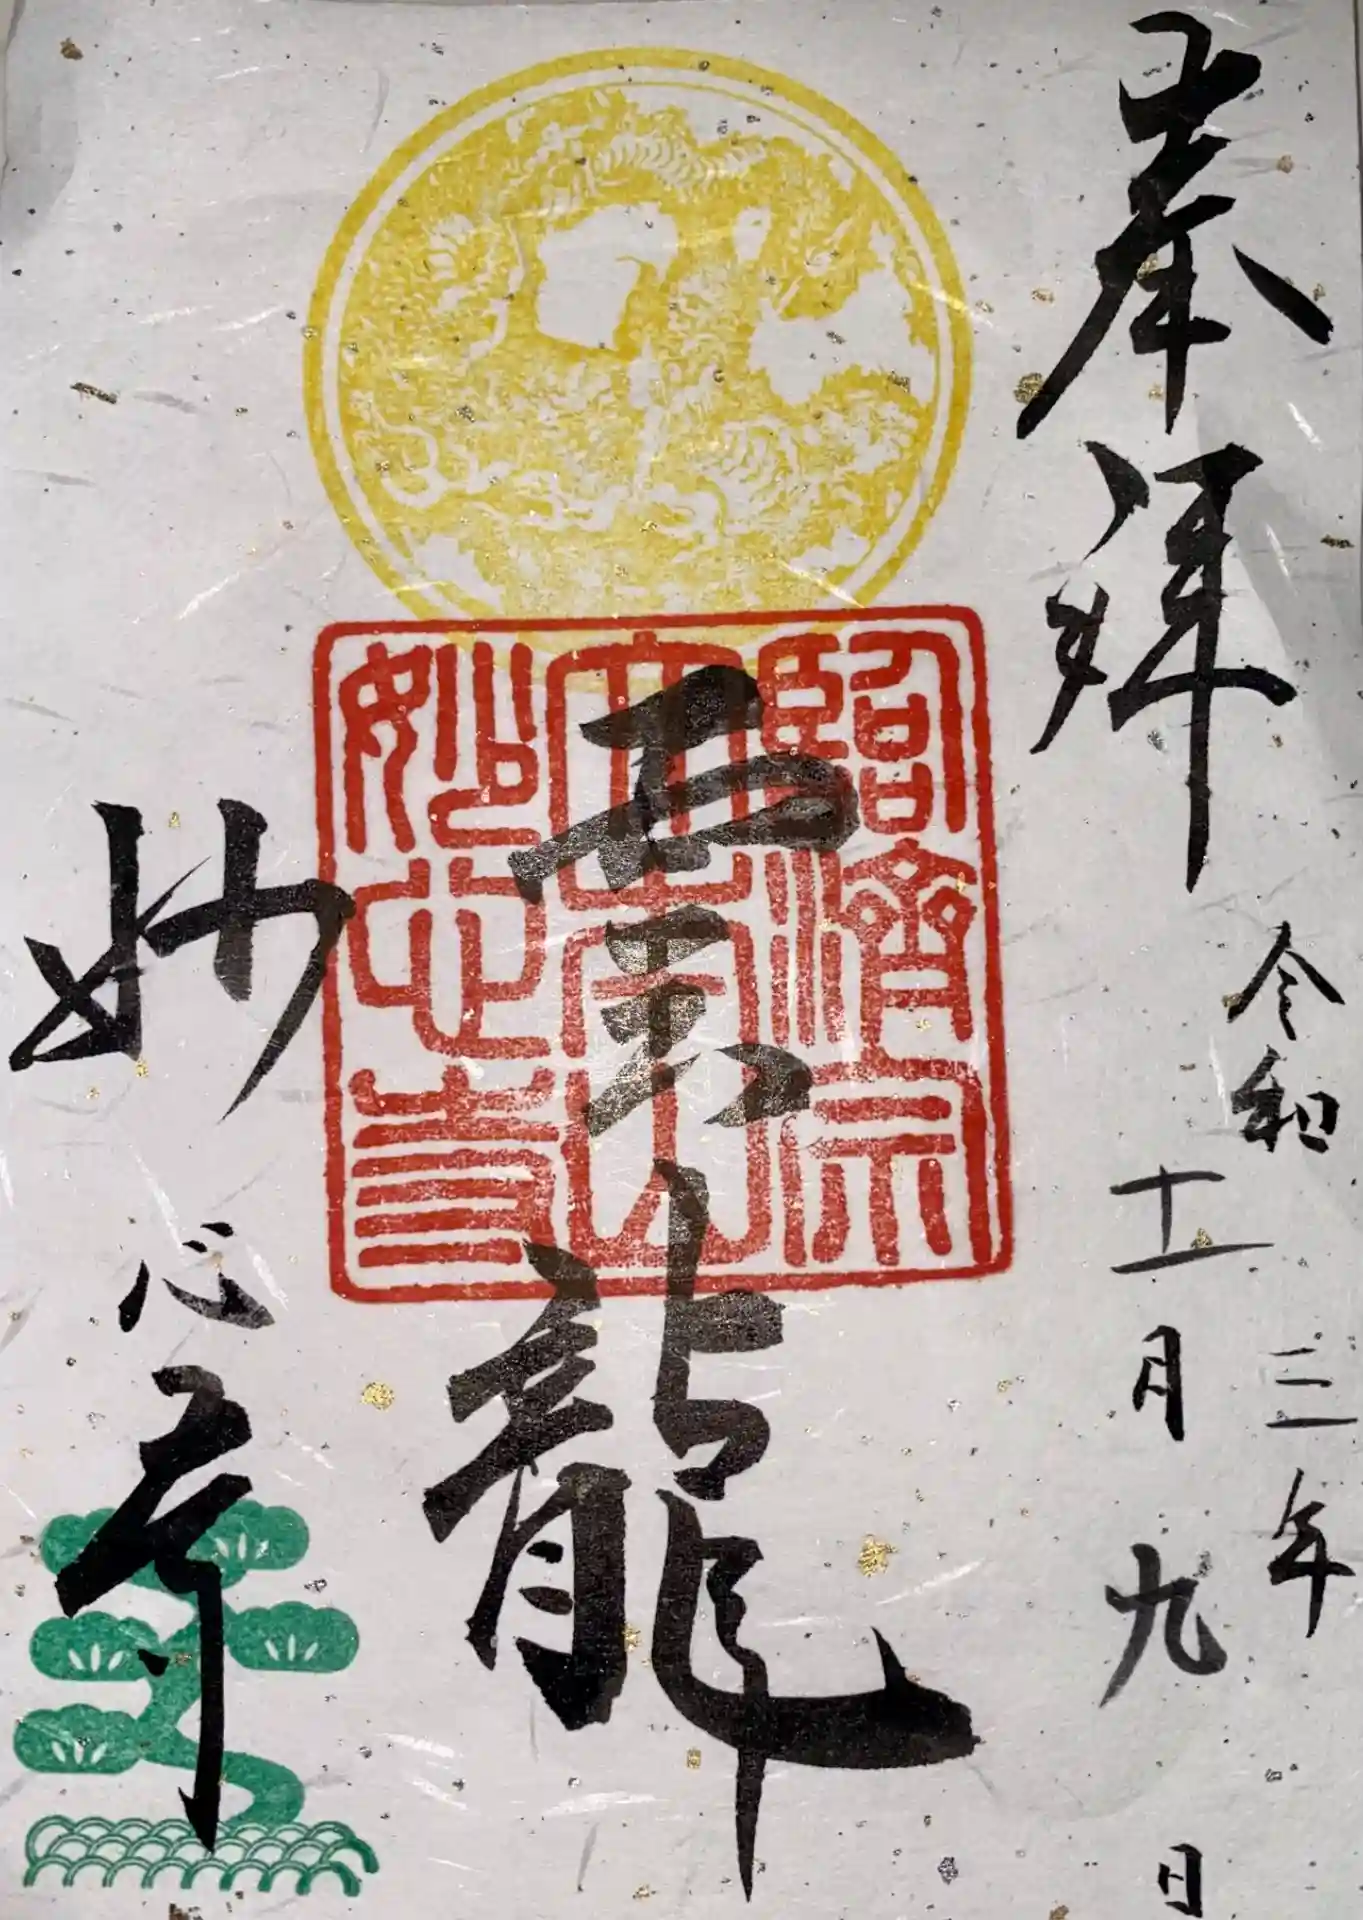 奉拝
令和三年
十一月九日
雲龍
臨濟宗
大本山
妙心寺
妙心寺